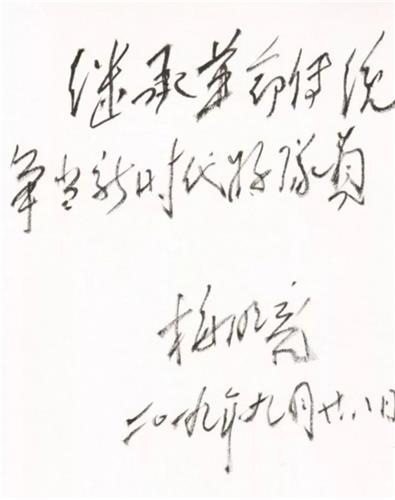 继承革命传统
争当新时代好队员
梅明亮
二〇一九年九月廿八日